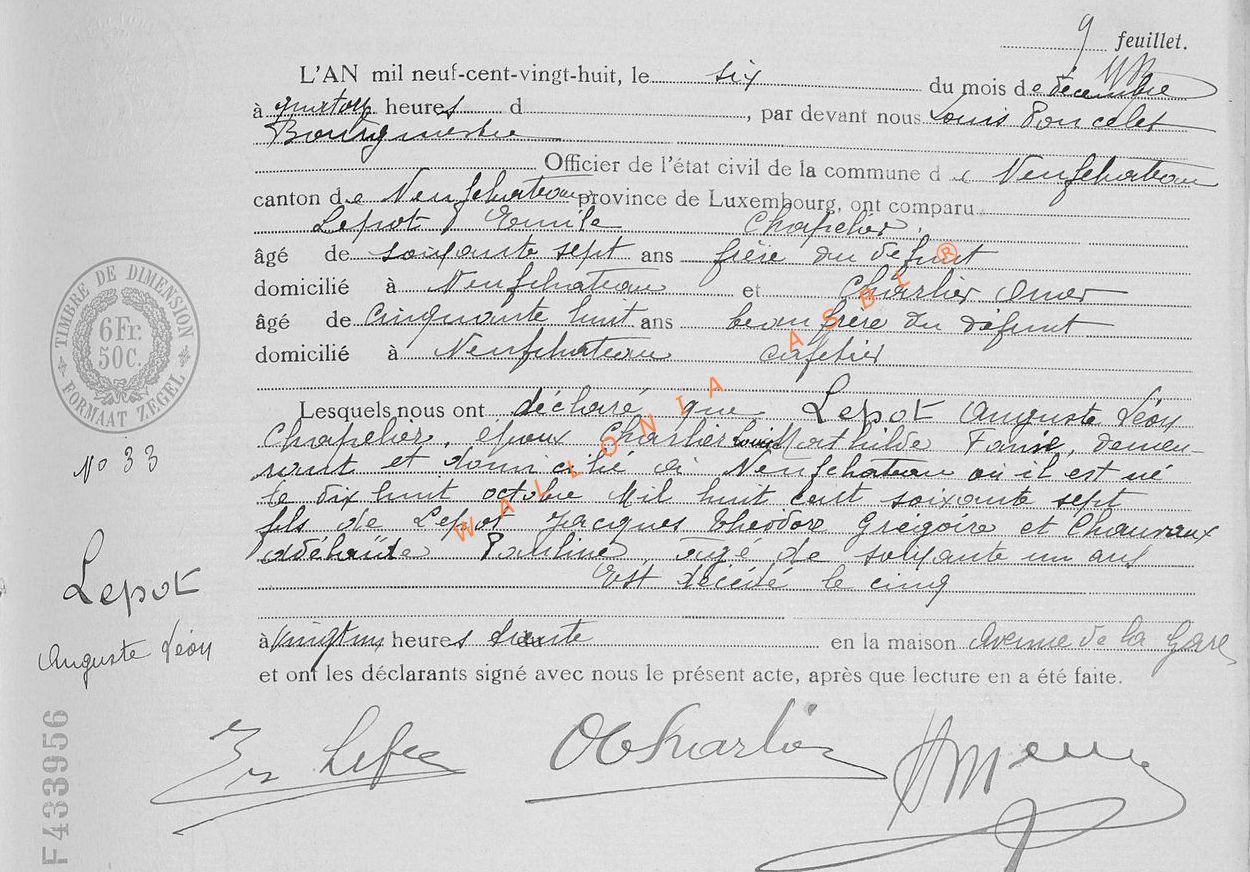 9 feuillet.
L'AN mil neuf-cent-vingt-huit, le six du mois de décembre
à quatorze heures d , par devant nous Louis Poncelet
Bourgmestre
Officier de l'état civil de la commune de Neufchateau
canton de Neufchateau province de Luxembourg, ont comparu
Lepot Emile Chapelier,
âgé de soixante sept ans frère du défunt
domicilié à Neufchateau et Charlier Omer
âgé de Cinquante huit ans beau frère du défunt
domicilié à Neufchateau cafetier
Lesquels nous ont déclaré que Lepot Auguste Léon
Chapelier, époux Charlier Louise Mathilde Fanie, demeu-
rant et domicilié à Neufchateau où il est né
le dix huit octobre Mil huit cent soixante sept
fils de Lepot Jacques Théodore Gregoire et Chauvaux
Adéhaïde Pauline agé de soixante un ans
Est décédé le cinq
à vingt un heures trente en la maison Avenue de la Gare
et ont les déclarants signé avec nous le présent acte, après que lecture en a été faite.
O Charlier
TIMBRE DE DIMENSION
6Fr.
50C.
FORMAAT ZEGEL
No 33
Lepot
Auguste Léon
F433956
WALLONIA ASBL ®